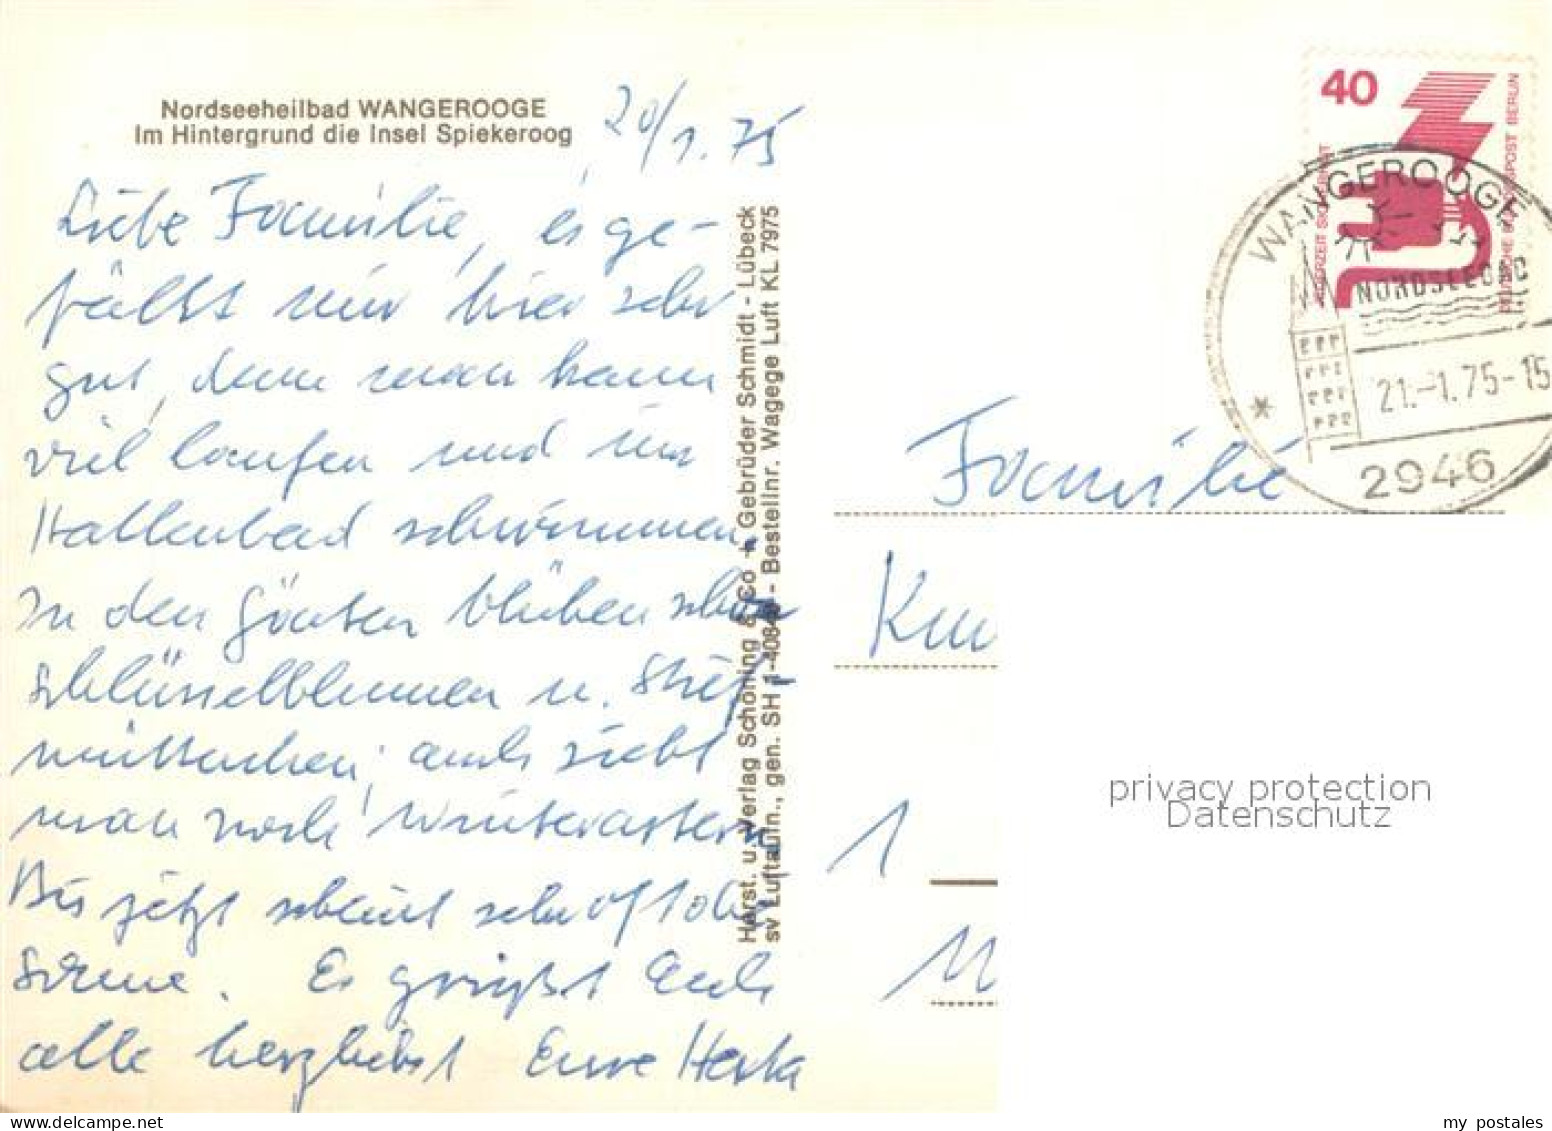 Nordseeheilbad WANGEROOGE
Im Hintergrund die Insel Spiekeroog
20/1. 75
Liebe Familie, es ge-
fällt mir hier sehr
gut, denn man kann
viel laufen und im
Hallenbad schwimmen.
In den Gärten blühen schon
Schlüsselblumen u. Stief-
mütterchen, auch sieht
man noch Winterastern
Bis jetzt scheint sehr oft die
Sonne. Es grüßt Euch
alle herzlichst Eure Herta
Herst. u. Verlag Schöning & Co + Gebrüder Schmidt - Lübeck
sv Luftaufn., gen. SH 1-408 - Bestellnr. Wagege Luft KL 7975
40
JEDERZEIT SICHERHEIT
DEUTSCHE BUNDESPOST BERLIN
WANGEROOGE
NORDSEEBAD
21.-1.75-15
2946
Familie
1
privacy protection
Datenschutz
my postales